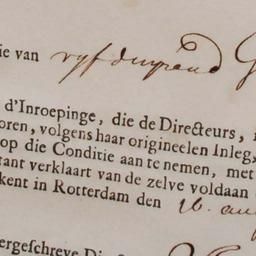 ie van vyf duyzend G
d'Inroepinge, die de Directeurs,
oren, volgens haar origineelen Inleg,
op die Conditie aan te nemen, met
tant verklaart van de zelve voldaan
kent in Rotterdam den 16. aug
ergeschreve Di